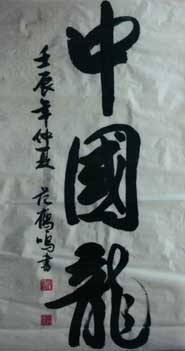 中國龍
壬辰年仲夏 范鶴鳴書